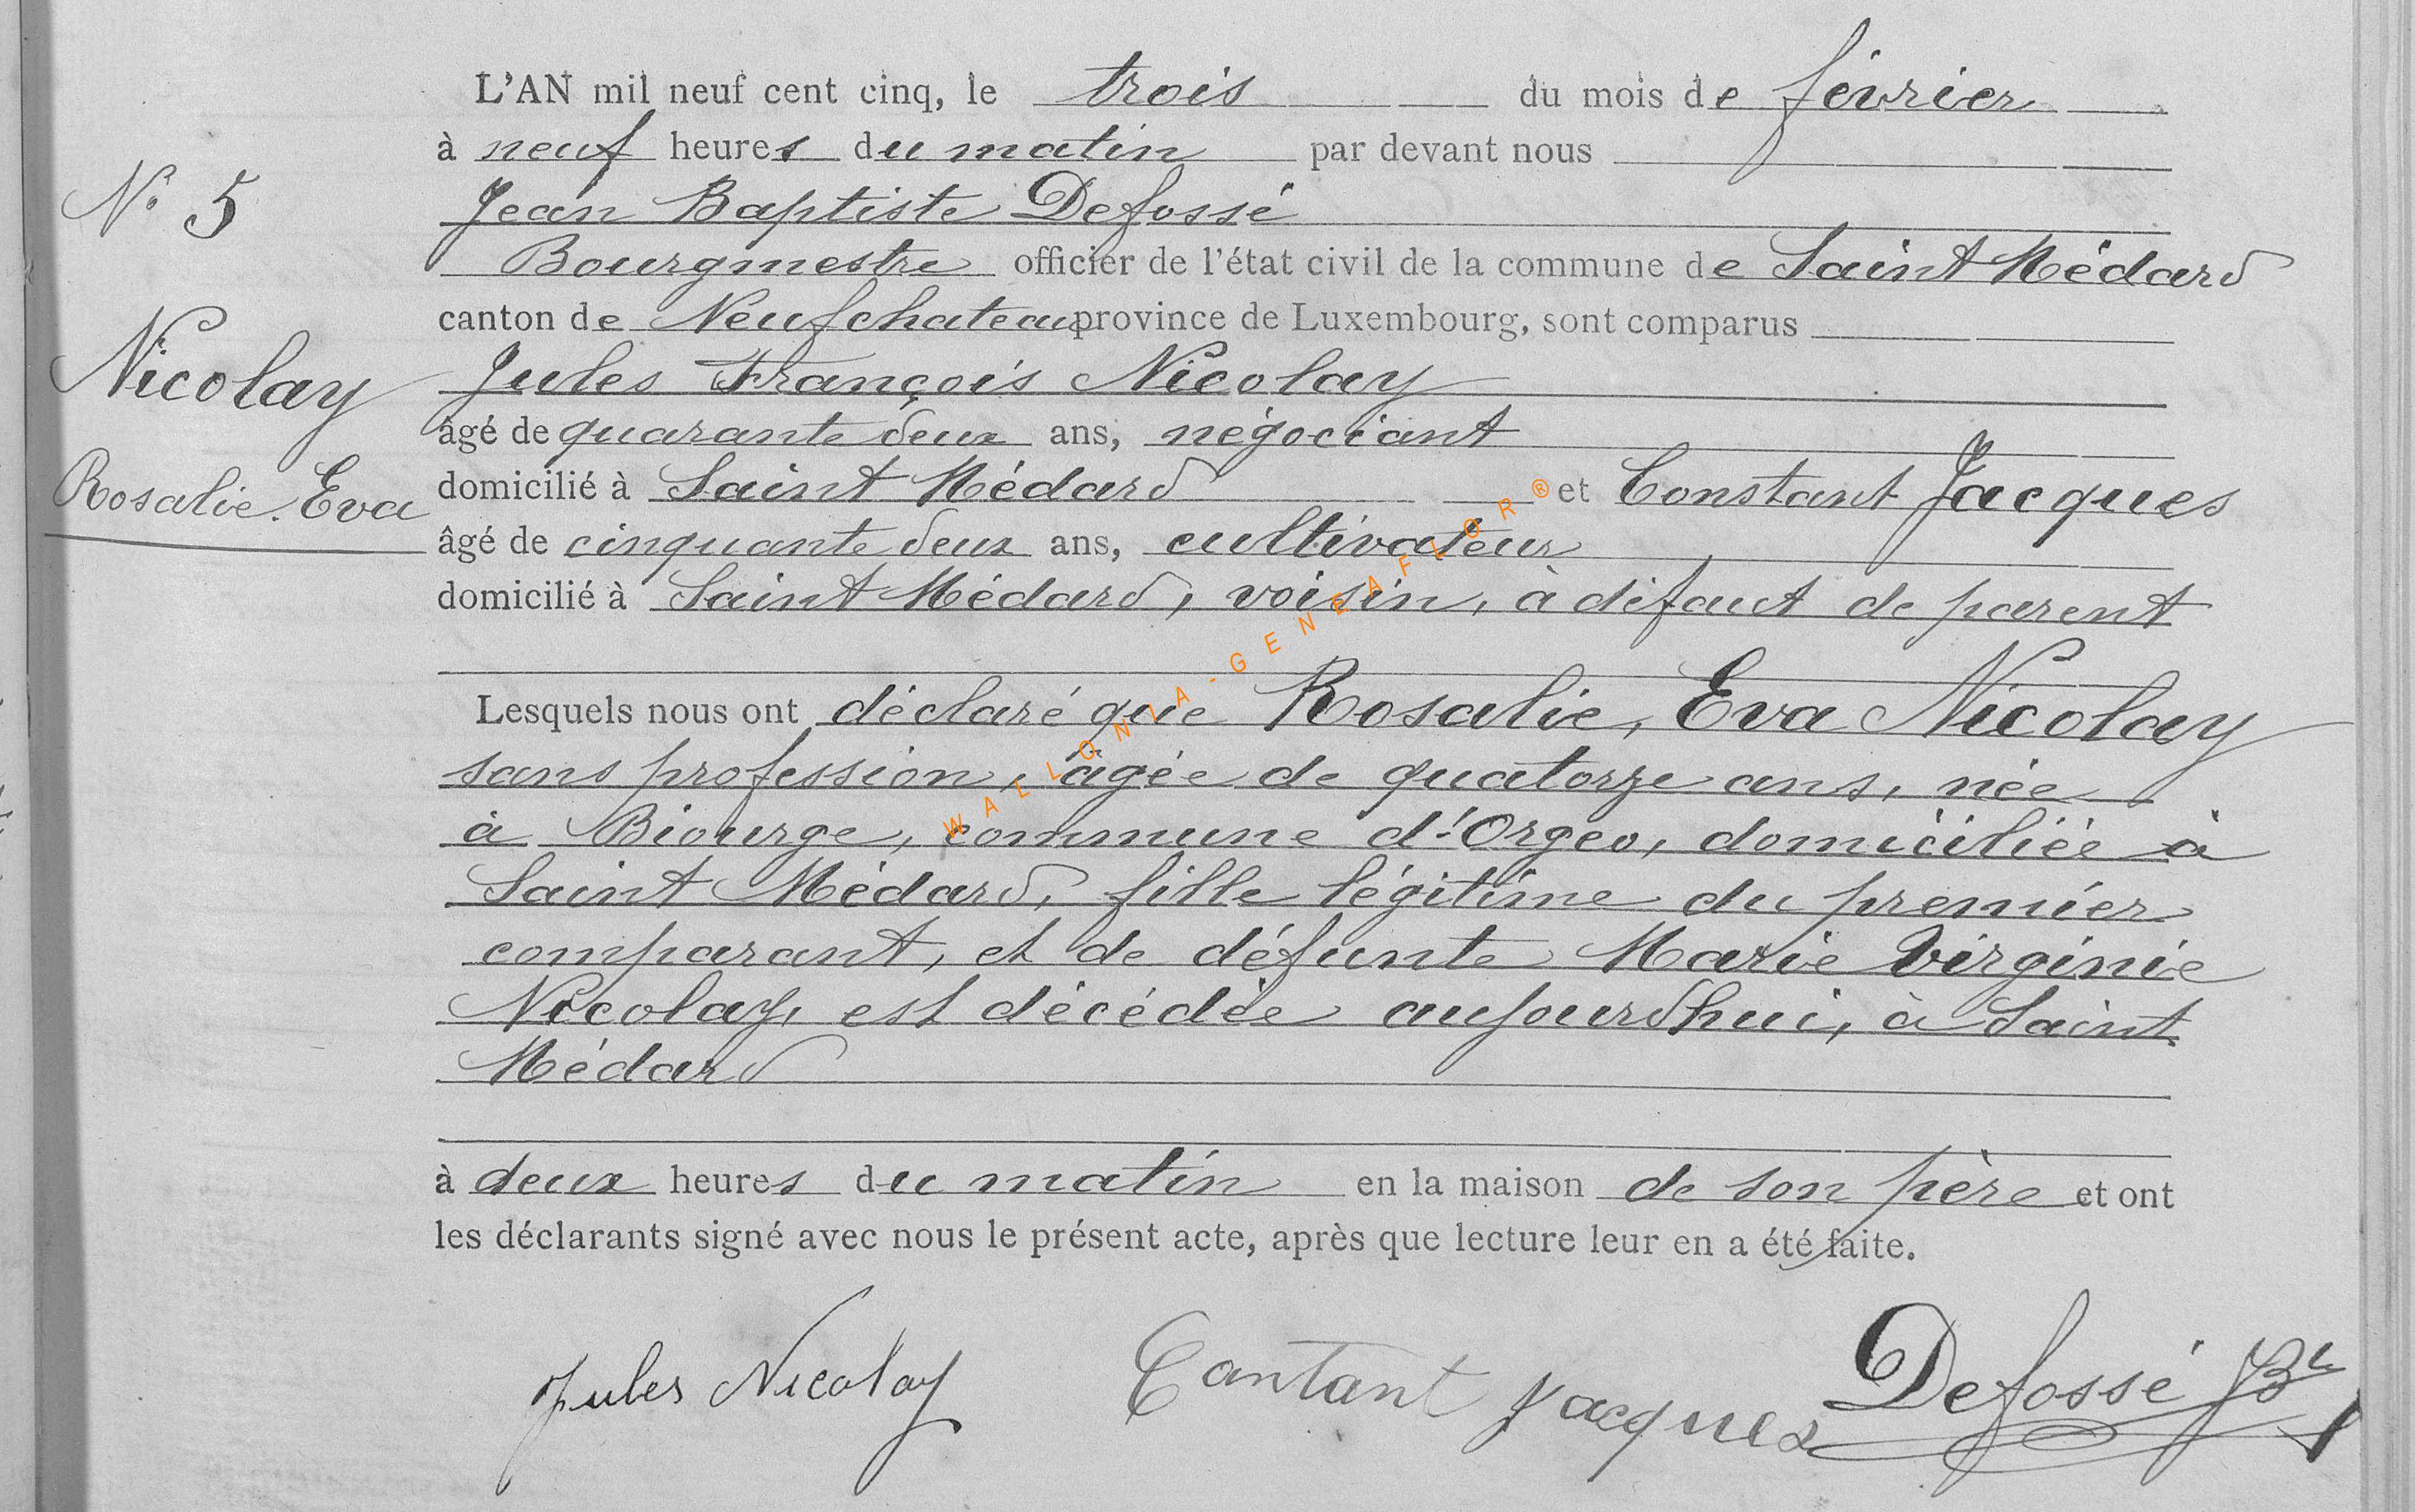 L'AN mil neuf cent cinq, le trois du mois de février
à neuf heures du matin par devant nous
N° 5
Jean Baptiste Defossé
Bourgmestre officier de l'état civil de la commune de Saint Médard
canton de Neufchateau province de Luxembourg, sont comparus
Nicolay
Jules François Nicolay
âgé de quarante deux ans, négociant
Rosalie. Eva
domicilié à Saint Médard et Constant Jacques
âgé de cinquante deux ans, cultivateur
domicilié à Saint Médard, voisin, à défaut de parent
Lesquels nous ont déclaré que Rosalie, Eva Nicolay
sans profession, âgée de quatorze ans, née
à Biourge, commune d'Orgeo, domiciliée à
Saint Médard, fille légitime du premier
comparant, et de défunte Marie Virginie
Nicolay, est décédée aujourd'hui, à Saint
Médard
à deux heures du matin en la maison de son père et ont
les déclarants signé avec nous le présent acte, après que lecture leur en a été faite.
Jules Nicolay Contant Jacques Defossé JBte
WALLONIA-GENEAFLOR®